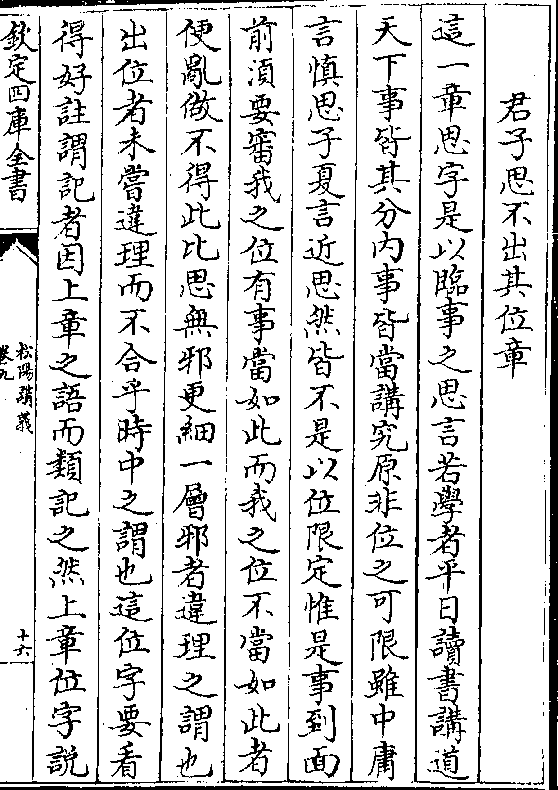 君子思不出其位章
這一章思字是以臨事之思言若學者平日讀書講道
天下事皆其分内事皆當講究原非位之可限雖中庸
言慎思子夏言近思然皆不是以位限定惟是事到面
前須要審我之位有事當如此而我之位不當如此者
便亂做不得此比思無邪更細一層邪者違理之謂也
出位者未嘗違理而不合乎時中之謂也這位字要看
得好註謂記者因上章之語而類記之然上章位字說
欽定四庫全書
松陽講義
卷九
十六